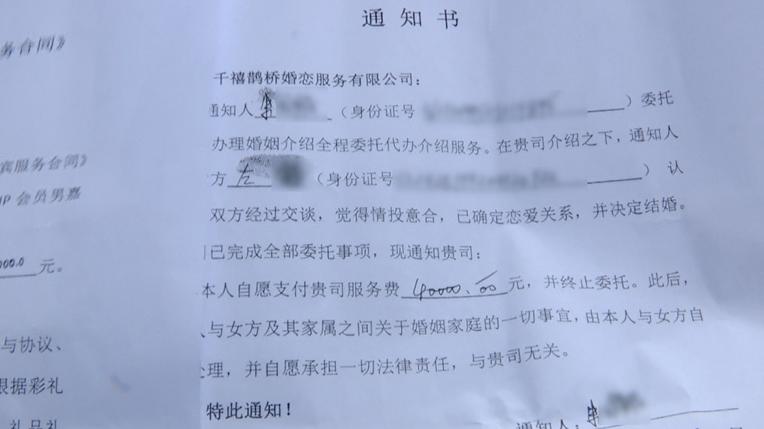 务合同》
宾服务合同》
P 会员男嘉
000.0 元。
与协议、
根据彩礼
礼品礼
通知书
千禧鹊桥婚恋服务有限公司：
通知人（身份证号）委托
办理婚姻介绍全程委托代办介绍服务。在贵司介绍之下，通知人
方 左（身份证号）认
双方经过交谈，觉得情投意合，已确定恋爱关系，并决定结婚。
已完成全部委托事项，现通知贵司：
本人自愿支付贵司服务费 40000.00 元，并终止委托。此后，
人与女方及其家属之间关于婚姻家庭的一切事宜，由本人与女方自
处理，并自愿承担一切法律责任，与贵司无关。
特此通知！
通知人：